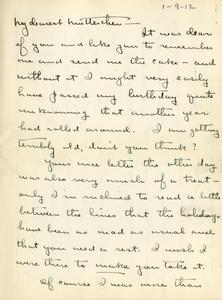 1-9-12
My dearest Mütterchen —
It was dear
of you and like you to remember
me and send me the cake — and
without it I might very easily
have passed my birthday quite
unknowing that another year
had rolled around. I am getting
terribly old, don't you think?
Your nice letter the other day
was also very much of a treat —
only I'm inclined to read a little
between the lines that the holidays
have been as mad as usual and
that you need a rest. I wish I
were there to make you take it.
Of course I was more than